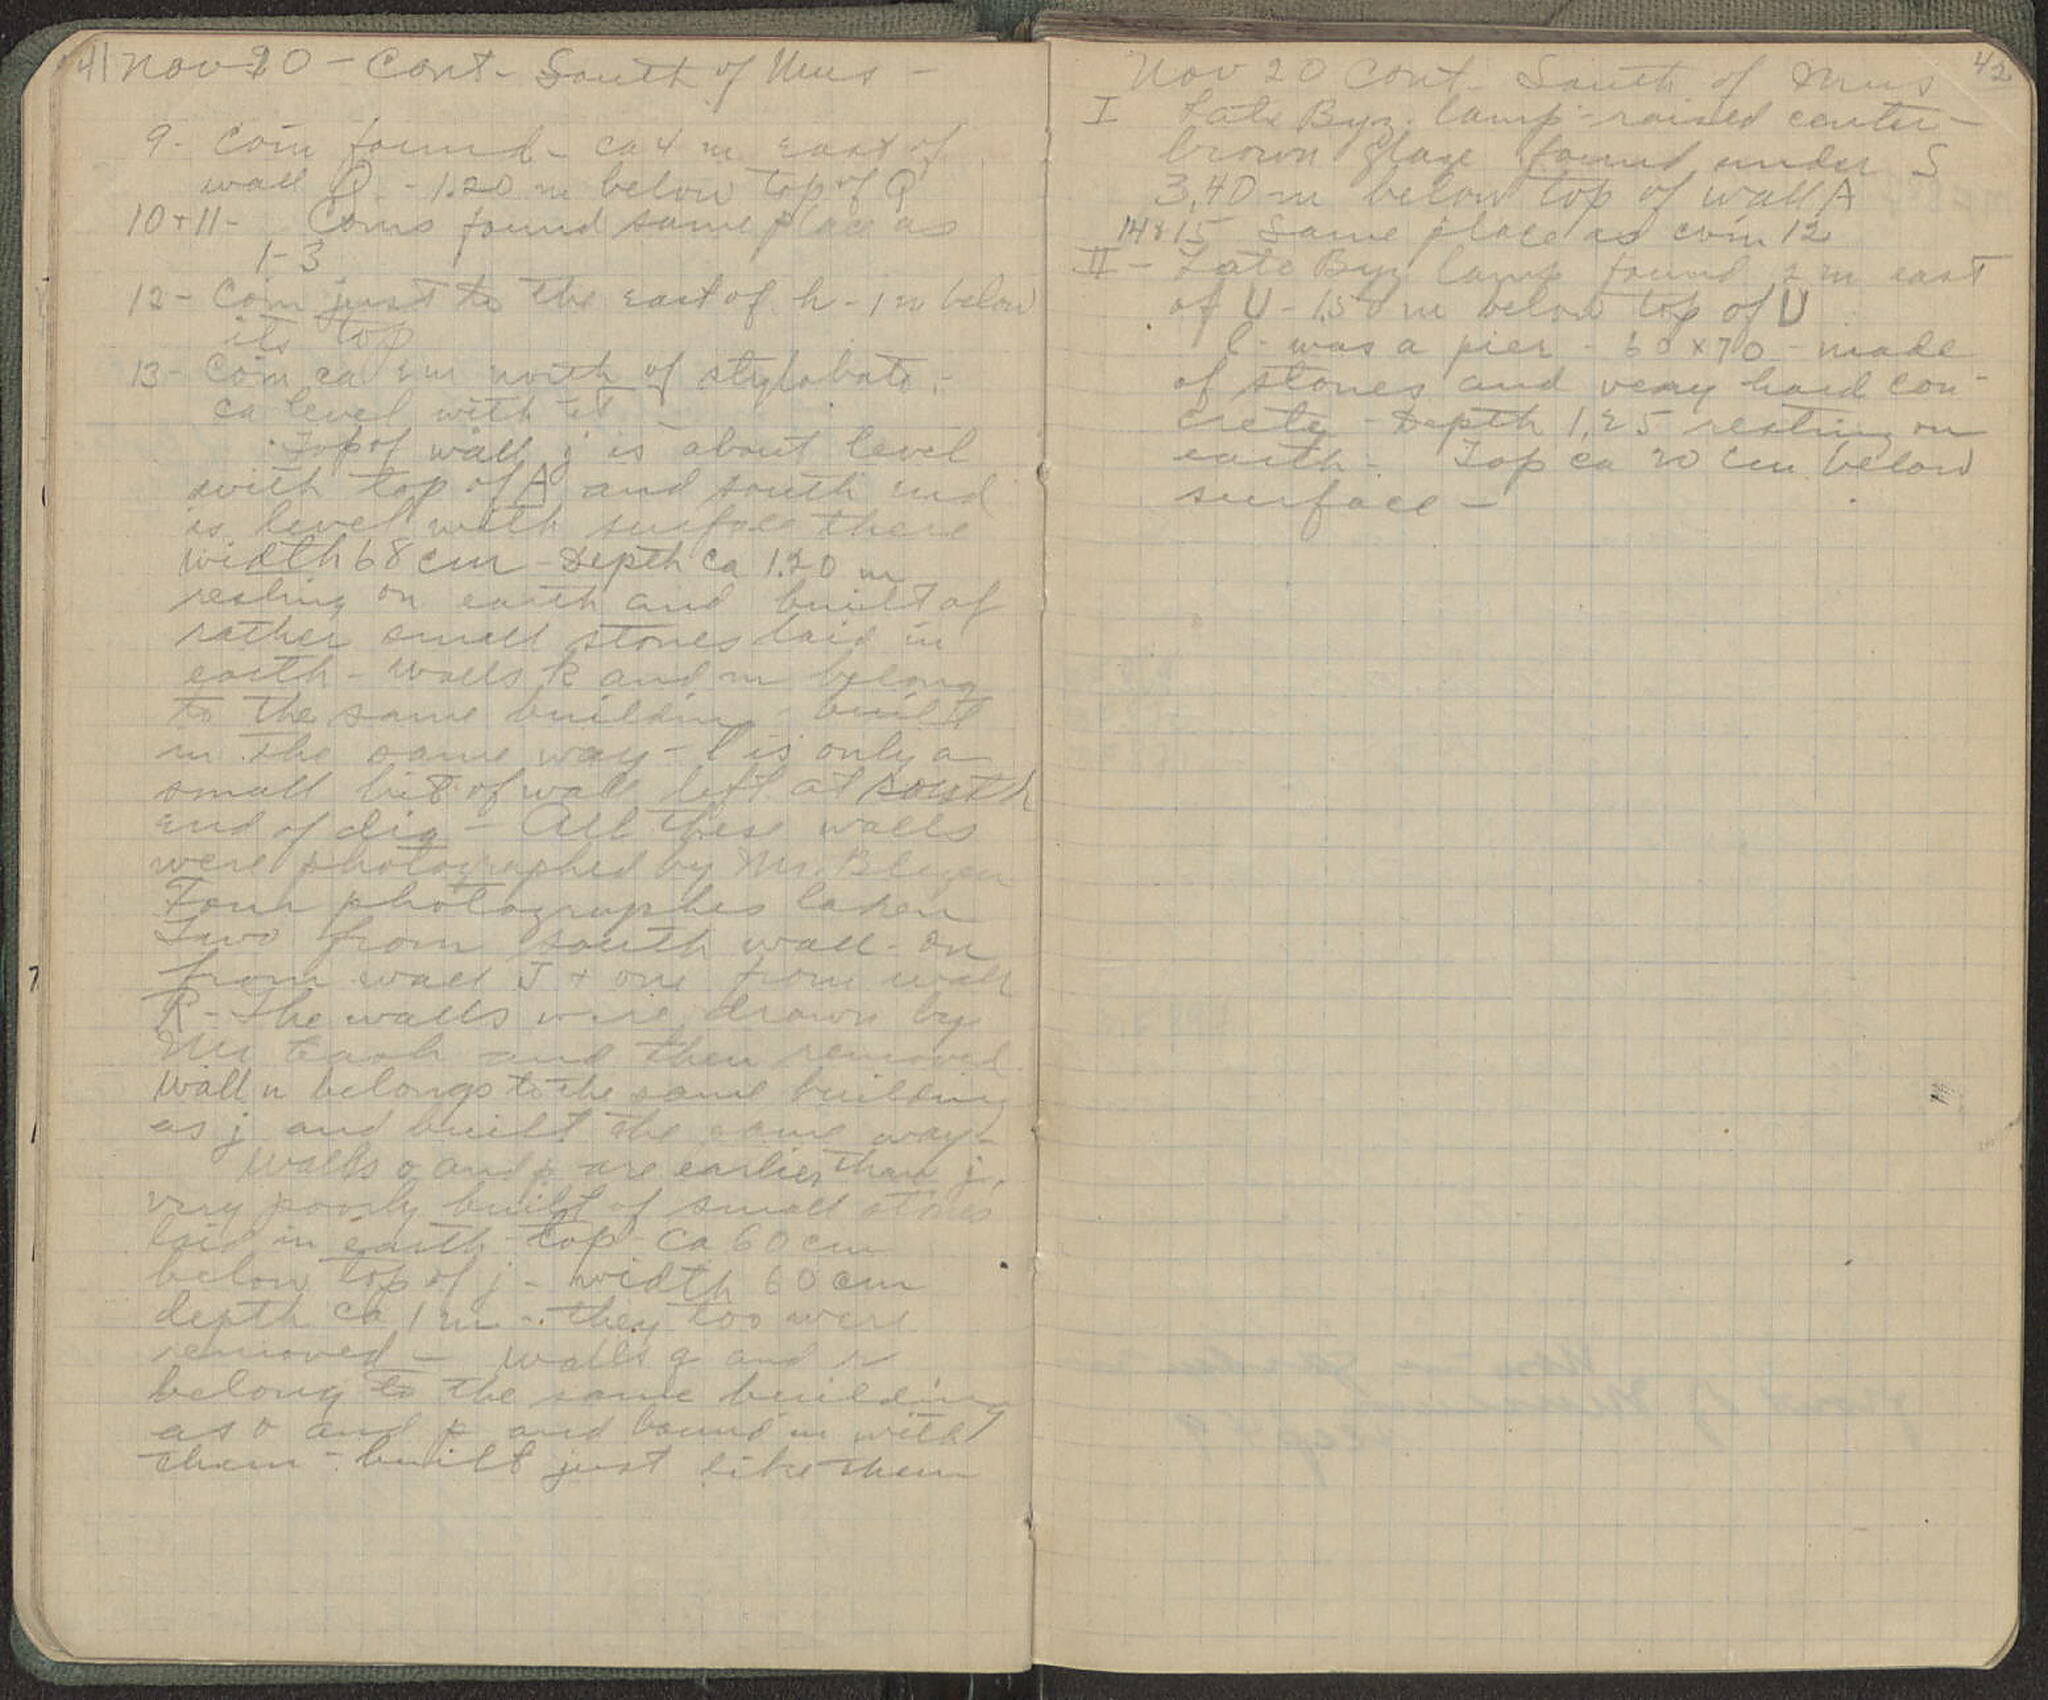 41 Nov 20 - Cont - South of Mus -
9 - Coin found - ca 4 m east of
wall Q - 1.20 m below top of Q
10 + 11 - Coins found same place as
1-3
12 - Coin just to the east of h - 1 m below
its top
13 - Coin ca 2 m north of stylobate -
ca level with it
Top of wall j is about level
with top of A and south end
is level with surface there
width 68 cm - Depth ca 1.20 m
resting on earth and built of
rather small stones laid in
earth - Walls k and m belong
to the same building built
in the same way - l is only a
small bit of wall left at south
end of dig - All these walls
were photographed by Mr. Blegen
Four photographs taken
Two from south wall - on
from wall J + one from wall
R - The walls were drawn by
Mr and then removed
Wall n belongs to the same building
as j and built the same way -
Walls o and p are earlier than j,
very poorly built of small stones
laid in earth - top ca 60 cm
below top of j - width 60 cm
depth ca 1 m - they too were
removed - Walls q and r
belong to the same building
as o and p and bound in with
them - built just like them
42
Nov 20 Cont - South of Mus
I Late Byz. lamp - raised center -
brown glaze found under S
3,40 m below top of wall A
14 & 15 Same place as coin 12
II - Late Byz lamp found 2 m east
of U - 1.50 m below top of U
l - was a pier - 60 x 70 - made
of stones and very hard con-
crete - Depth 1,25 resting on
earth - Top ca 20 cm below
surface -